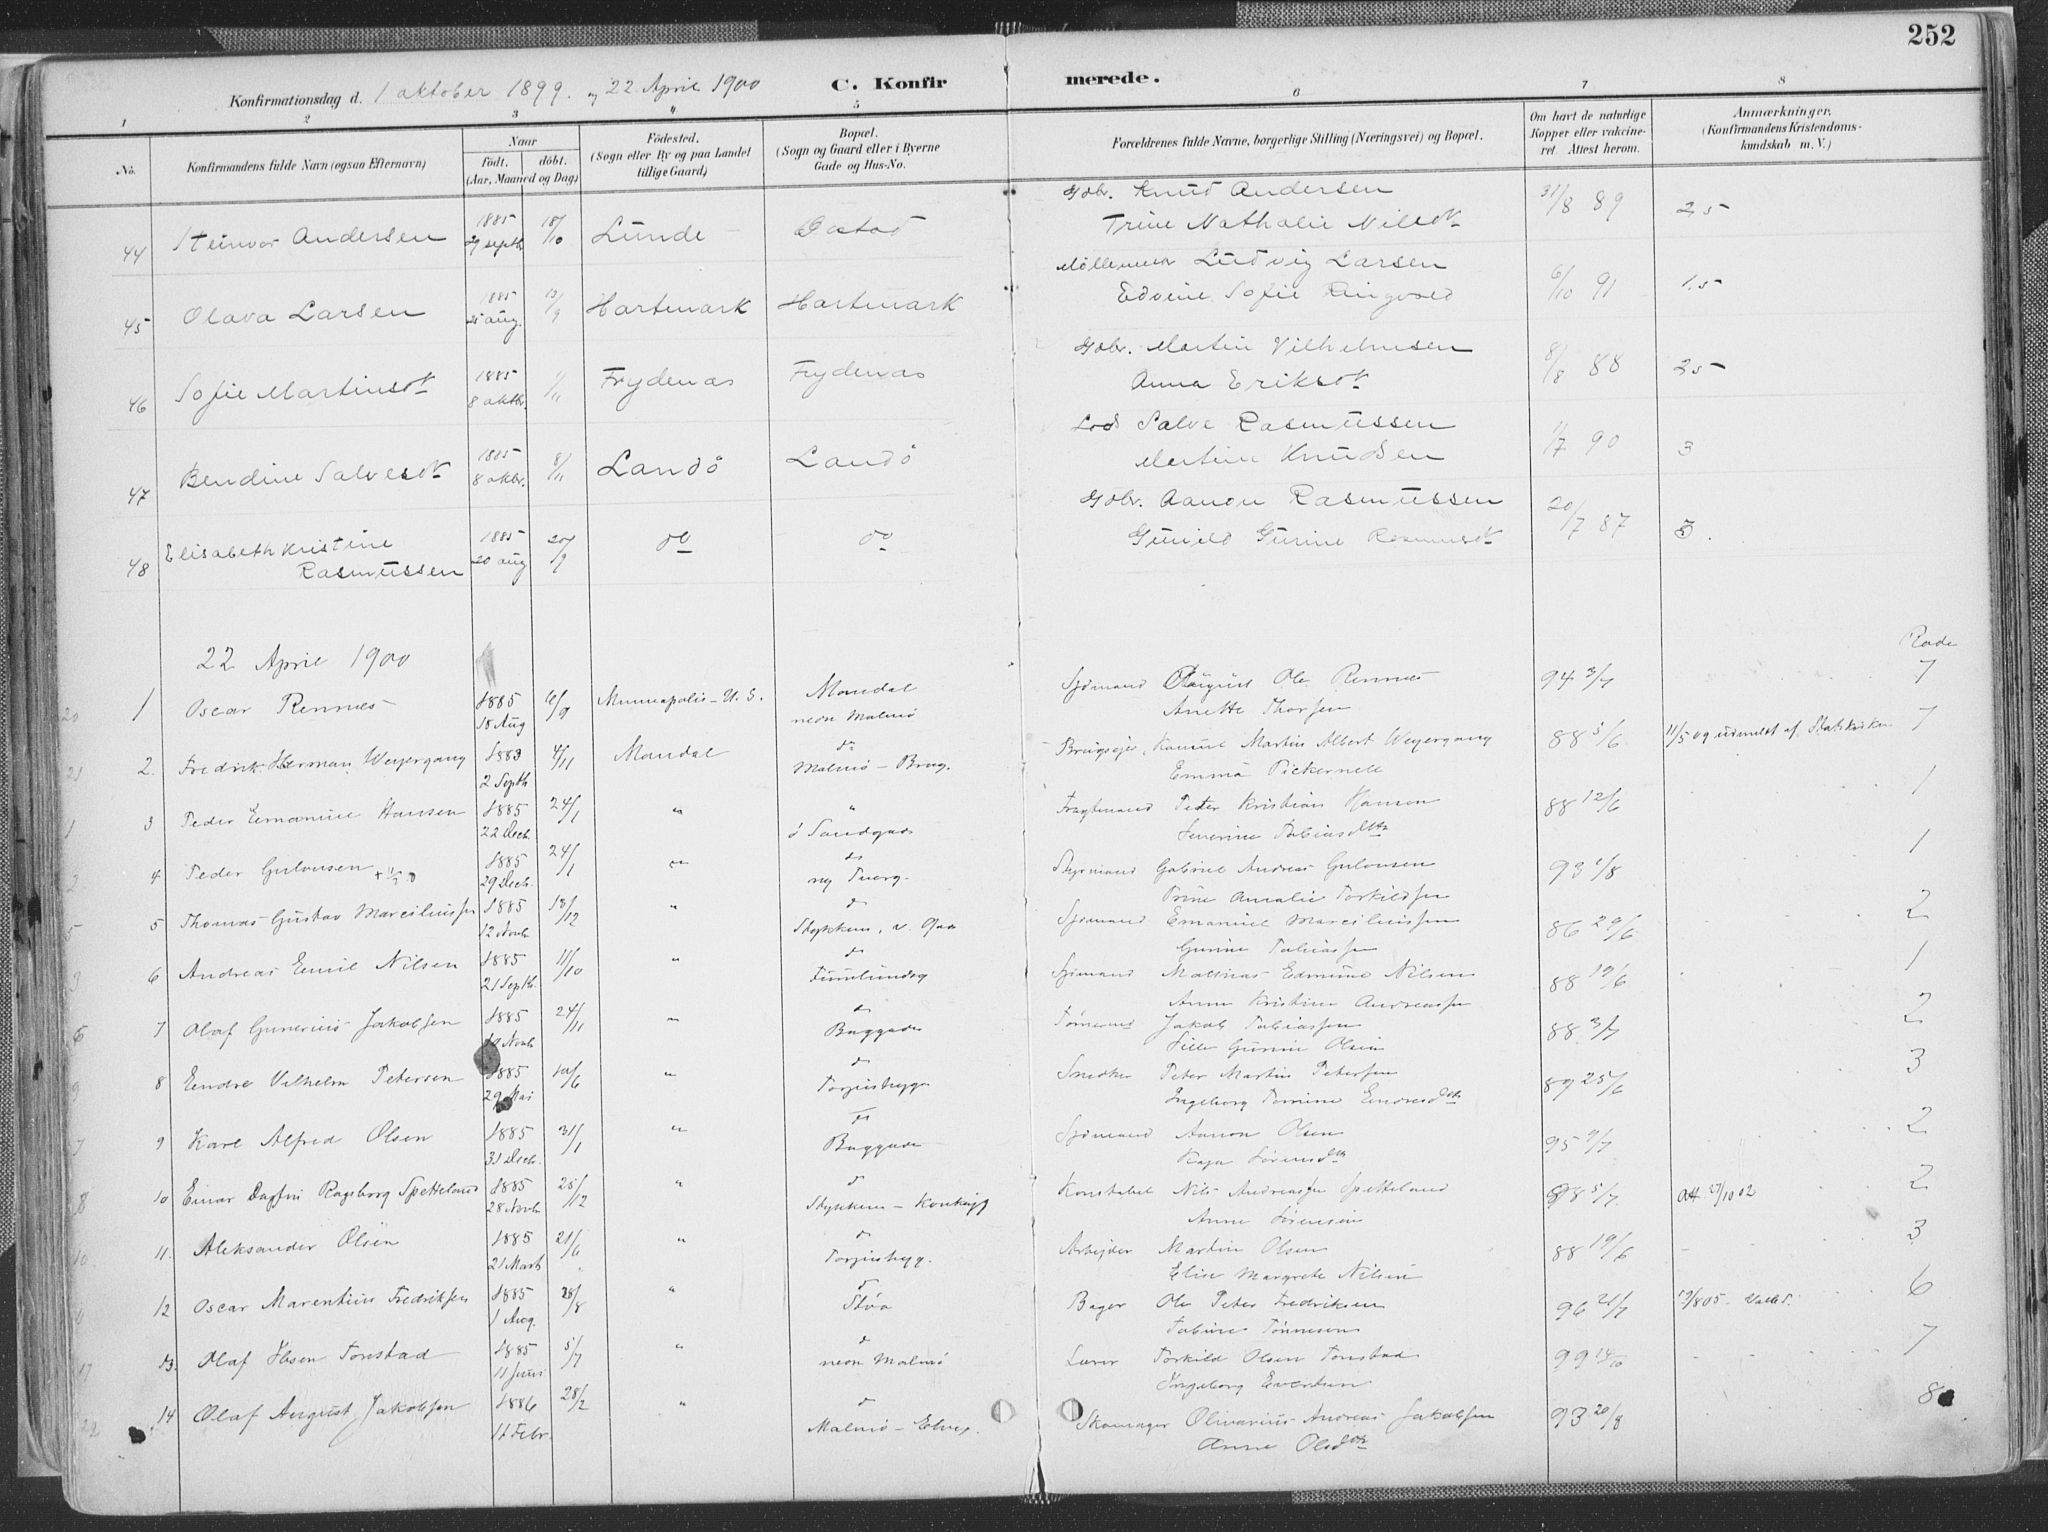 252
Konfirmationsdag d. 1 oktober 1899. og 22 April 1900 C. Konfirmerede.
1 2 3 4 5 6 7 8
No. Konfirmandens fulde Navn (ogsaa Efternavn) Naar födt. döbt. (Aar, Maaned og Dag) Födested. (Sogn eller By og paa Landet tillige Gaard) Bopæl. (Sogn og Gaard eller i Byerne Gade og Hus-No. Forældrenes fulde Navne, borgerlige Stilling (Næringsvei) og Bopæl. Om havt de naturlige Kopper eller vakcineret. Attest herom. Anmærkninger. (Konfirmandens Kristendomskundskab m. V.)
44 Steinvor Andersen 1885 29 septb. 18/10 Lunde Gbr. Knud Andersen 31/8 89 2,5
Trine Nathalie Nilsdt.
45 Olava Larsen 1885 aug. 13/9 Hartmark Hartmark Ludvig Larsen 6/10 91 1.5
Edvine Sofie Ringvold
46 Sofie Martinsdt. 1885 8 oktbr. 1/11 Frydenas Frydenas Gbr. Martin Vilhelmsen 8/8 88 2,5
Anna Eriksdt.
47 Bendine Salvesdt. 1885 8 oktbr. 8/11 Landö Landö Lods Salve Rasmussen 1/7 90 3
Martine Knudsen
48 Elisabeth Kristine Rasmussen 1885 20 aug 20/9 do do Gbr. Aanon Rasmussen 20/7 87 3.
Gunild Gurine Rasmusdt.
22 April 1900
Rode
20 1 Oscar Rennes 1885 18 Aug 6/9 Minneapolis - U. S. Mandal neon Malmö Sjömand August Ole Rennes 94 3/7 7
Anette Thorsen
21 2. Fredrik Herman Weyergang 1883 2 Septb 4/11 Mandal do Malmö - Brug. Brugsejer Kamiel Martin Albert Weyergang 88 5/6 11/5 09 udmeldt af Statskirken 7
Emma Pickernell
1 3 Peder Emanuel Hansen 1885 22 Decb. 24/1 " " ö Sandgade Fragtmand Peder Kristian Hansen 88 12/6 1
Severine Tobiasdtr
2 4 Peder Gulovsen 1885 29 Decb. 24/1 " do Styrmand Gabriel Andreas Gulovsen 93 1/8 1
Trine Amalie Torkildsen
5 5 Thomas Gustav Marceliussen 1885 12 Novb. 13/12 " do Sjömand Emanuel Marceliussen 86 20/6 2
Gurine Tobiassen
3 6 Andreas Emil Nilsen 1885 21 Septb. 11/10 " do Sjömand Mathias Edmund Nilsen 88 19/6 1
Anne Kristine Andreassen
6 7 Olaf Gunerius Jakobsen 1885 10 Novb 24/11 " Buggade Tömmerm Jakob Tobiassen 88 3/7 2
Sille Gurine Olsen
9 8 Endre Vilhelm Petersen 1885 29 Mai 10/6 " do Torjushyg Snedker Peter Martin Petersen 89 25/6 3
Ingeborg Tomine Endresdtr
7 9 Karl Alfred Olsen 1885 31 Decb. 31/1 " do Buggade Sjömand Aanon Olsen 95 9/7 2
Kaja Sörensdtr
8 10 Einar Dagfin Ragsborg Spetteland 1885 28 Novb. 25/12 " do Konstabel Nils Andreassen Spetteland 98 5/7. Att 27/10 02 2
Anne Sörensen
10 11. Aleksander Olsen 1885 21 Marts 21/6 " do Torjushyg. Arbejder Martin Olsen 88 19/6 3
Elise Margrete Nilsen
12 Oscar Marentius Fredriksen 1885 1 Aug. 28/8 " do Stöa Bager Ole Peter Fredriksen 96 21/7 19/8 05 6
Tobine Tönnesen
17 13. Olaf Olsen Tonstad 1885 11 Juni 5/7 " do neon Malmö Lærer Torkild Olsen Tonstad 99 14/10 7
Ingeborg Evertsen
22 14 Olaf August Jakobsen 1886 11 Febr. 28/2 " do Malmö - Elves. Skomager Olivarius Andreas Jakobsen 93 20/8 8
Anne Olsdtr